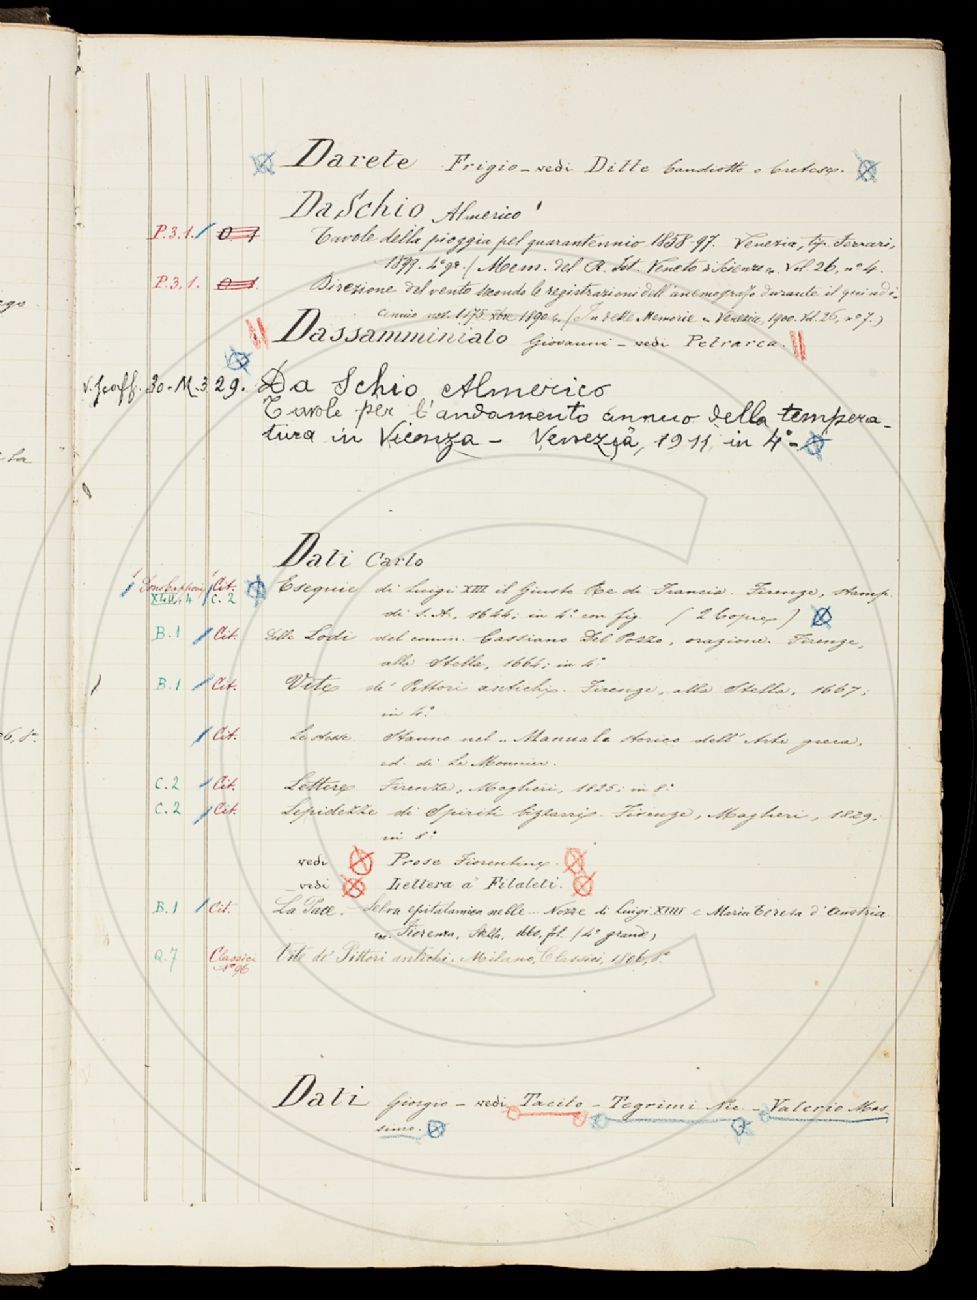 Darete Frigio - vedi Ditte Candiotto o Cretese.
Da Schio Almerico
P.3.1. Tavole della pioggia pel quarantennio 1858-97. Venezia, tip. Ferrari,
1899. 4° gr. (Mem. del R. Ist. Veneto di Scienze Vol 26, n° 4.
P.3.1. Direzione del vento secondo le registrazioni dell'anemografo durante il quindi-
cennio 1890. (In dette Memorie Venezia, 1900. Vol. 26, n° 7.)
Dassamminiato Giovanni - vedi Petrarca.
V. Scaff. 30. M. 3 29. Da Schio Almerico
Tavole per l'andamento annuo della tempera-
tura in Vicenza - Venezia, 1911, in 4°-
Dati Carlo
Cit. Esequie di Luigi XIII il Giusto Re di Francia. Firenze, stamp.
XLII. 4 C. 2 di S. A., 1644; in 4° con fig. (2 Copie)
B.1 Cit. Delle Lodi del comm. Cassiano Del Pozzo, orazione. Firenze,
alla Stella, 1664; in 4°
B.1 Cit. Vite de' Pittori antichi. Firenze, alla Stella, 1667;
in 4°
Cit. Le stesse Stanno nel Manuale storico dell'Arte greca,
ed. di Le Monnier.
C.2 Cit. Lettere Firenze, Magheri, 1825; in 8°
C.2 Cit. Lepidezze di Spiriti bizzarri. Firenze, Magheri, 1829;
in 8°
vedi Prose Fiorentine.
vedi Lettera a' Filaleti.
B.1 Cit. La Pace. Selva epitalamica nelle Nozze di Luigi XIIII e Maria Teresa d'Austria
Fiorenza, Stella, fol. (4° grande)
Q.7 Classici N° 96 Vite de' Pittori antichi. Milano, Classici, 1806, 8°
Dati Giorgio - vedi Tacito - Tegrimi Nic. - Valerio Mas
simo.